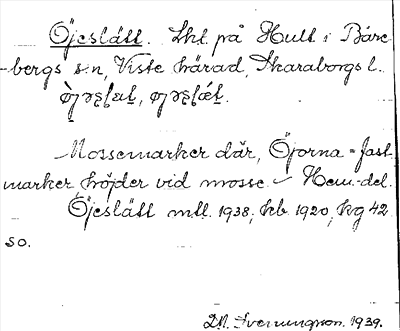 Öjeslätt. Lht på Hult i Båre-
bergs sn, Viste härad, Skaraborgs l.
Mossemarker där, Öjorna = fast-
marker, höjder vid mosse. - Hem.-del.
Öjeslätt mtl. 1938, kb 1920, kg 42
so.
D.A. Sverningson. 1939.